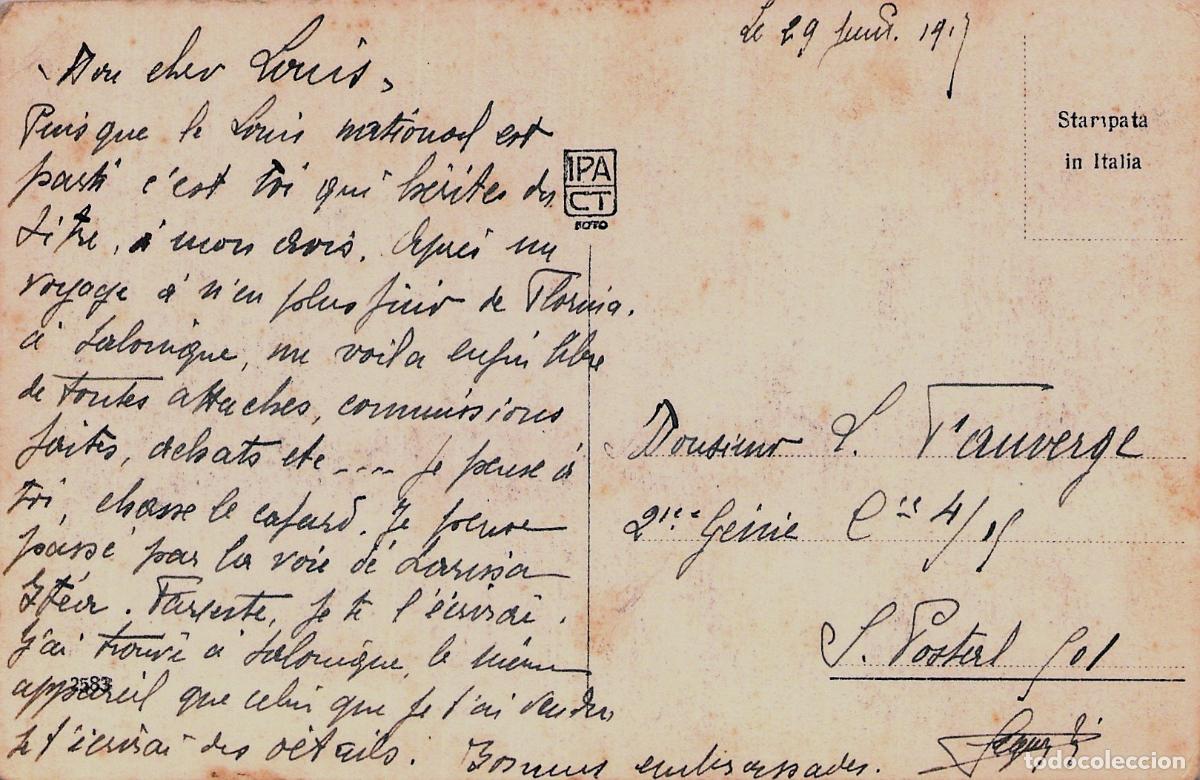 Le 29 1917
Mon cher Louis,
Puisque le Louis national est
parti c'est toi qui hérites du
titre, à mon avis. Après un
voyage à n'en plus finir de Florina
à Salonique, me voilà enfin libre
de toutes attaches, commissions
faites, achats etc .... Je pense à
toi, chasse le cafard. Je pense
passé par la voie de Larissa
Itéa. Tarente, je te l'écrirai.
J'ai trouvé à Salonique le même
appareil que celui que je t'ai vendu
je t'écrirai des détails. embrassades.
IPA
CT
FOTO
3583
Stampata
in Italia
Monsieur L. Fauverge
2me Génie Cie 4/15
S. Postal 501
todocoleccion